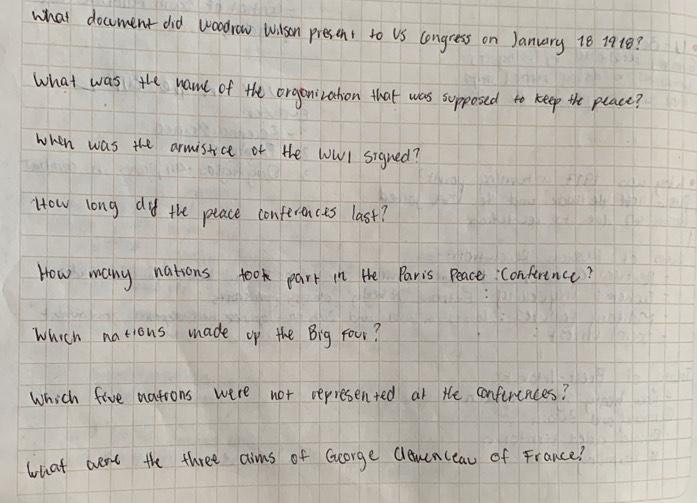 What document did Woodrow Wilson present to US Congress on January 18 1918?
What was the name of the organization that was supposed to keep the peace?
When was the armistice of the WW1 signed?
How long did the peace conferences last?
How many nations took part in the Paris Peace Conference?
Which nations made up the Big Four?
Which five nations were not represented at the conferences?
What were the three aims of George Clemenceau of France?